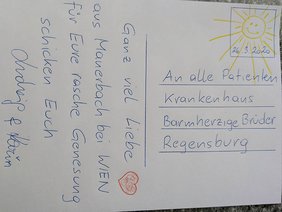 Ganz viel Liebe
aus Mauerbach bei WIEN
für Eure rasche Genesung
schicken Euch
24.3.2020
An alle Patienten
Krankenhaus
Barmherzige Brüder
Regensburg